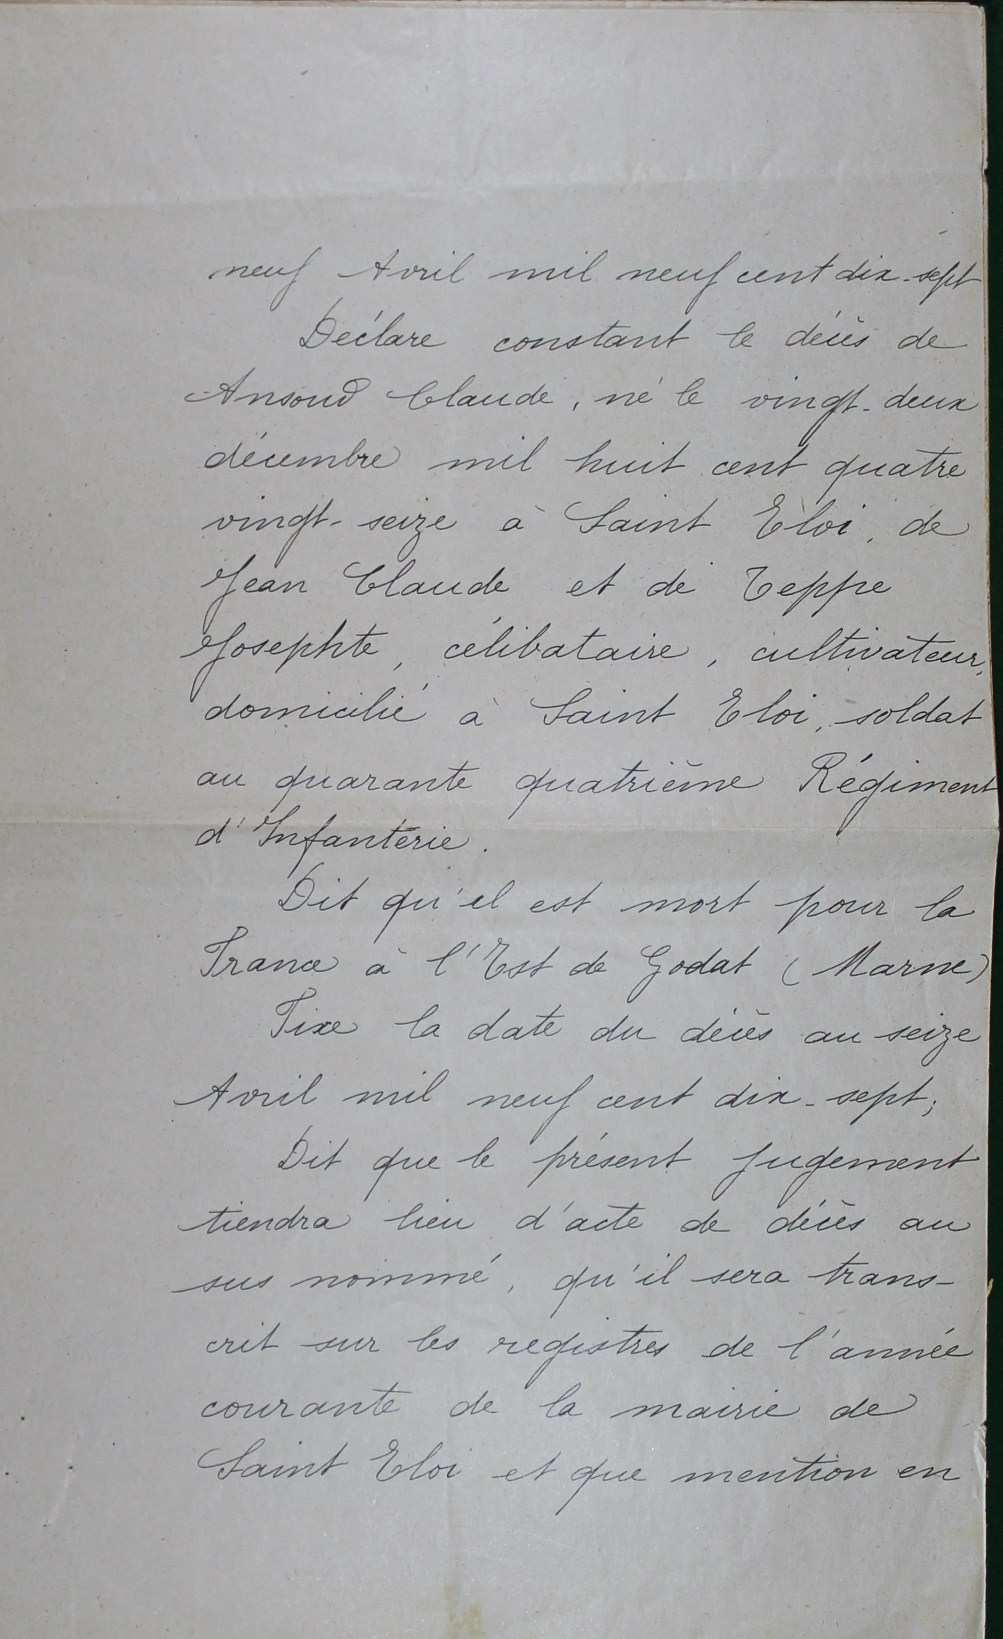 neuf Avril mil neuf cent dix-sept
Déclare constant le décès de
Ansoud Claude, né le vingt-deux
décembre mil huit cent quatre
vingt-seize à Saint Eloi, de
Jean Claude et de Teppe
Josephte, célibataire, cultivateur,
domicilié à Saint Eloi, soldat
au quarante quatrième Régiment
d'Infanterie.
Dit qu'il est mort pour la
France à l'Est de Godat (Marne)
Fixe la date du décès au seize
Avril mil neuf cent dix-sept;
Dit que le présent jugement
tiendra lieu d'acte de décès au
sus nommé, qu'il sera trans-
crit sur les registres de l'année
courante de la mairie de
Saint Eloi et que mention en